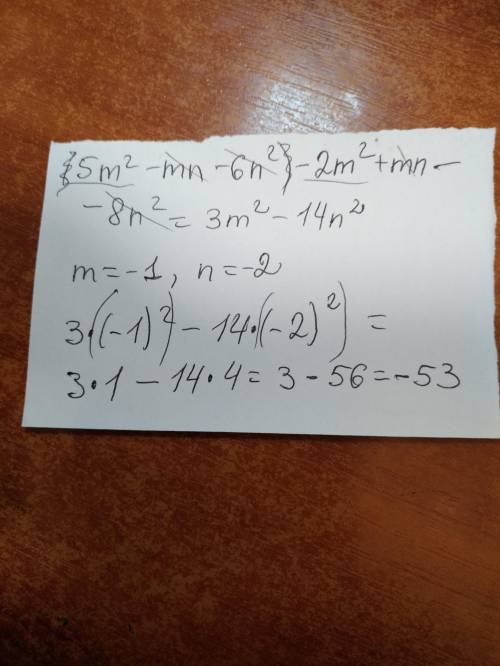 {5m² - mn - 6n²} - 2m² + mn -
- 8n² = 3m² - 14n²
m = -1, n = -2
3·((-1)²) - 14·((-2)²) =
3·1 - 14·4 = 3 - 56 = -53